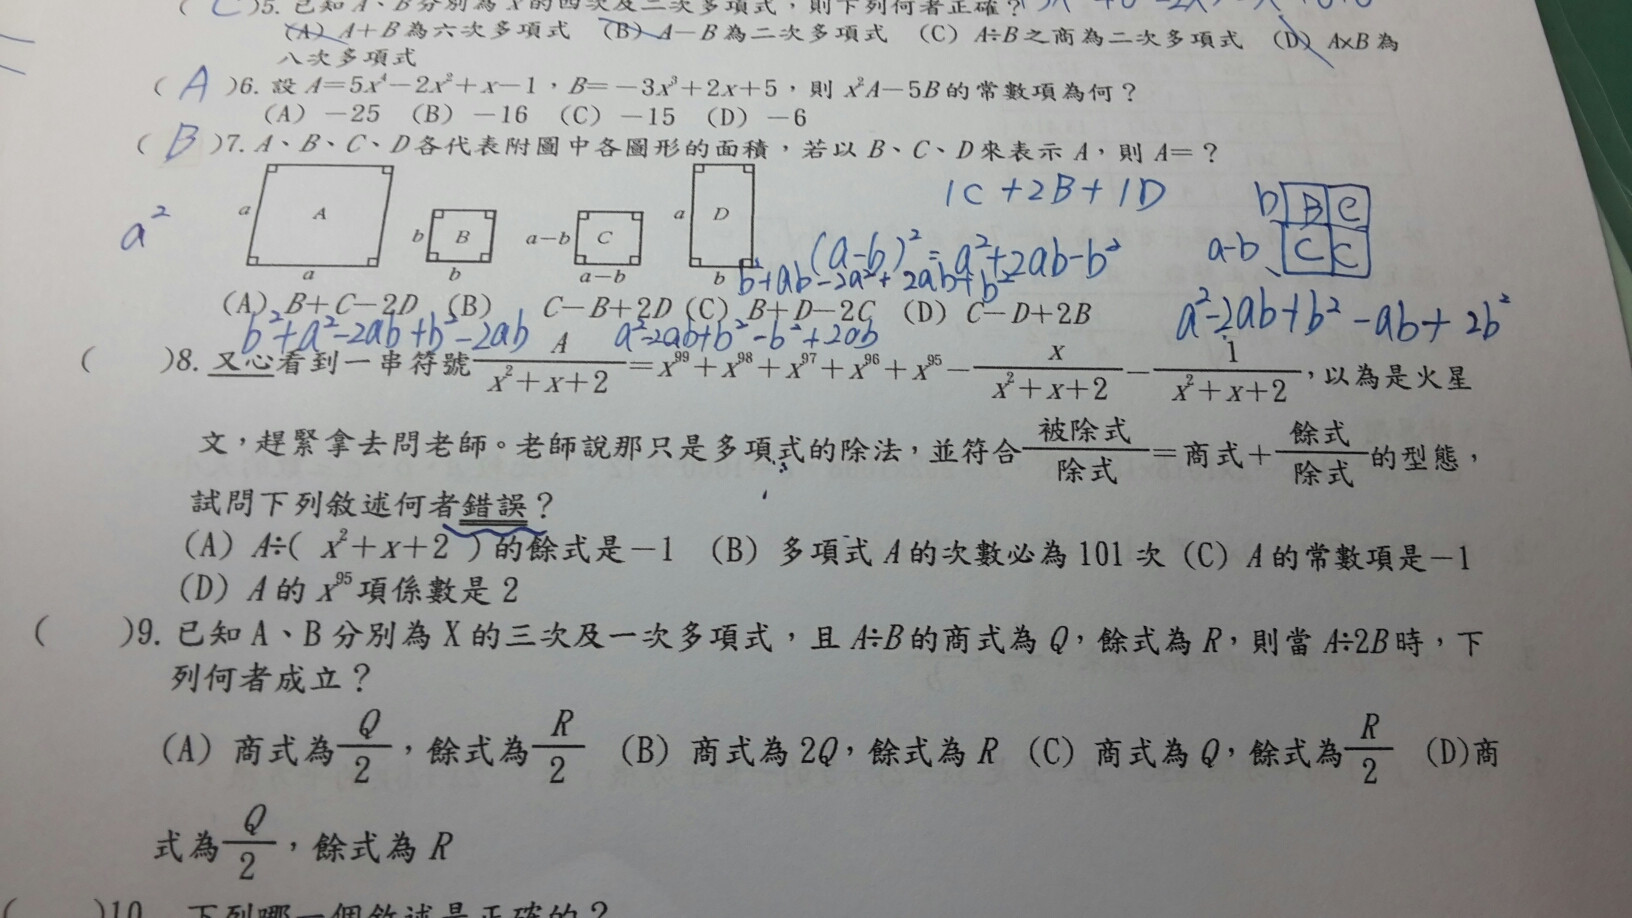 ( C )5. 已知 A、B 分別為 X 的四次及二次多項式，則下列何者正確？
(A) A+B 為六次多項式 (B) A-B 為二次多項式 (C) A÷B 之商為二次多項式 (D) A×B 為
八次多項式
( A )6. 設 A=5x⁴-2x²+x-1，B=-3x³+2x+5，則 x²A-5B 的常數項為何？
(A) -25 (B) -16 (C) -15 (D) -6
( B )7. A、B、C、D 各代表附圖中各圖形的面積，若以 B、C、D 來表示 A，則 A=？
1C+2B+1D
a² a A a b B b a-b C a-b a D b
b B C
a-b C C
(a-b)²=a²+2ab-b²
b²+ab-2a²+2ab+b²
(A) B+C-2D (B) C-B+2D (C) B+D-2C (D) C-D+2B
b²+a²-2ab+b²-2ab a²-2ab+b²-b²+2ab a²-2ab+b²-ab+2b²
( )8. 又心看到一串符號 A/(x²+x+2)=x⁹⁹+x⁹⁸+x⁹⁷+x⁹⁶+x⁹⁵-x/(x²+x+2)-1/(x²+x+2)，以為是火星
文，趕緊拿去問老師。老師說那只是多項式的除法，並符合 被除式/除式=商式+餘式/除式 的型態，
試問下列敘述何者錯誤？
(A) A÷( x²+x+2 ) 的餘式是-1 (B) 多項式 A 的次數必為 101 次 (C) A 的常數項是-1
(D) A 的 x⁹⁵ 項係數是 2
( )9. 已知 A、B 分別為 X 的三次及一次多項式，且 A÷B 的商式為 Q，餘式為 R，則當 A÷2B 時，下
列何者成立？
(A) 商式為 Q/2，餘式為 R/2 (B) 商式為 2Q，餘式為 R (C) 商式為 Q，餘式為 R/2 (D)商
式為 Q/2，餘式為 R
( )10. 下列哪一個敘述是正確的？